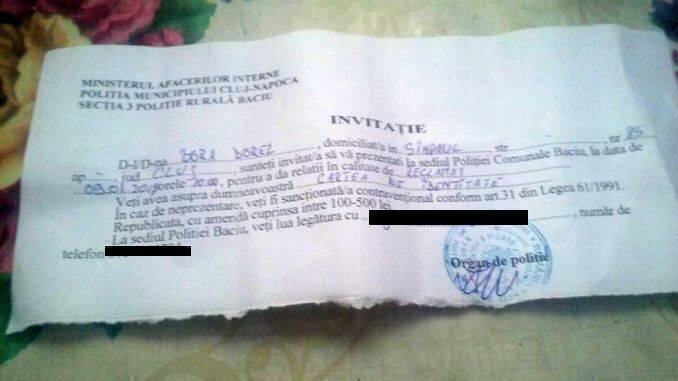 MINISTERUL AFACERILOR INTERNE
POLITIA MUNICIPIULUI CLUJ-NAPOCA
SECŢIA 3 POLIŢIE RURALĂ BACIU
INVITAŢIE
D-l/D-na BORA DOREL, domiciliat/a in SÎNPAUL str nr 85
ap - jud CLUJ, sunteţi invitat/a să vă prezentaţi la sediul Poliţiei Comunale Baciu, la data de
orele, pentru a da relatii în calitate de RECLAMAT
Veţi avea asupra dumneavoastră CARTEA DE IDENTITATE
În caz de neprezentare, veţi fi sancţionată/a contravenţional conform art.31 din Legea 61/1991.
Republicata, cu amendă cuprinsa între 100-500 lei
La sediul Poliţiei Baciu, veţi lua legătura cu, număr de
telefon
Organ de politie